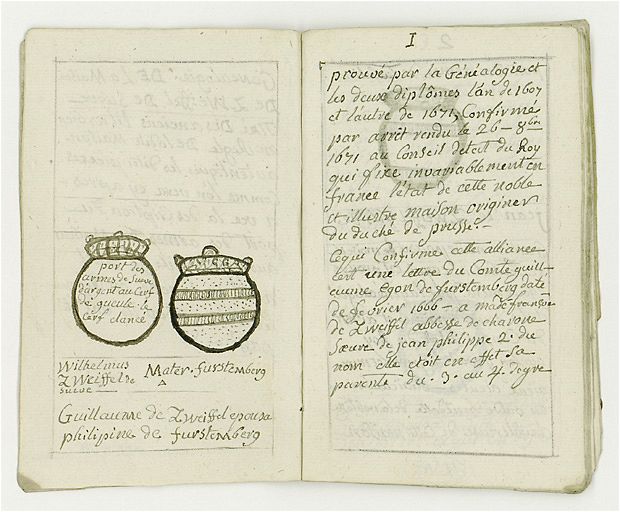 port des
armes de Sueve
d'argent au Cerf
de gueule. le
Cerf elancé
Wilhelmus
Zweiffel de
sueve
Mater. furstemberg
Guillaume de Zweiffel epousa
philipine de furstemberg
1
prouvé par la Généalogie et
les deux diplômes l'an de 1607
et l'autre de 1671, Confirmé
par arrêt rendu le 26 - 8bre
1671 au Conseil detat du Roy
qui fixe invariablement en
france l'état de cette noble
et illustre maison originer
du duché de prusse. -
Cequi Confirme cette alliance
lest une lettre du Comte guill-
aume egon de furstemberg daté
de fevrier 1666 - a made françoise
de Zweiffel abbesse de
Sœure de jean philippe 2. du
nom elle etoit en effet Sa
parente du. 3. au 4. degre